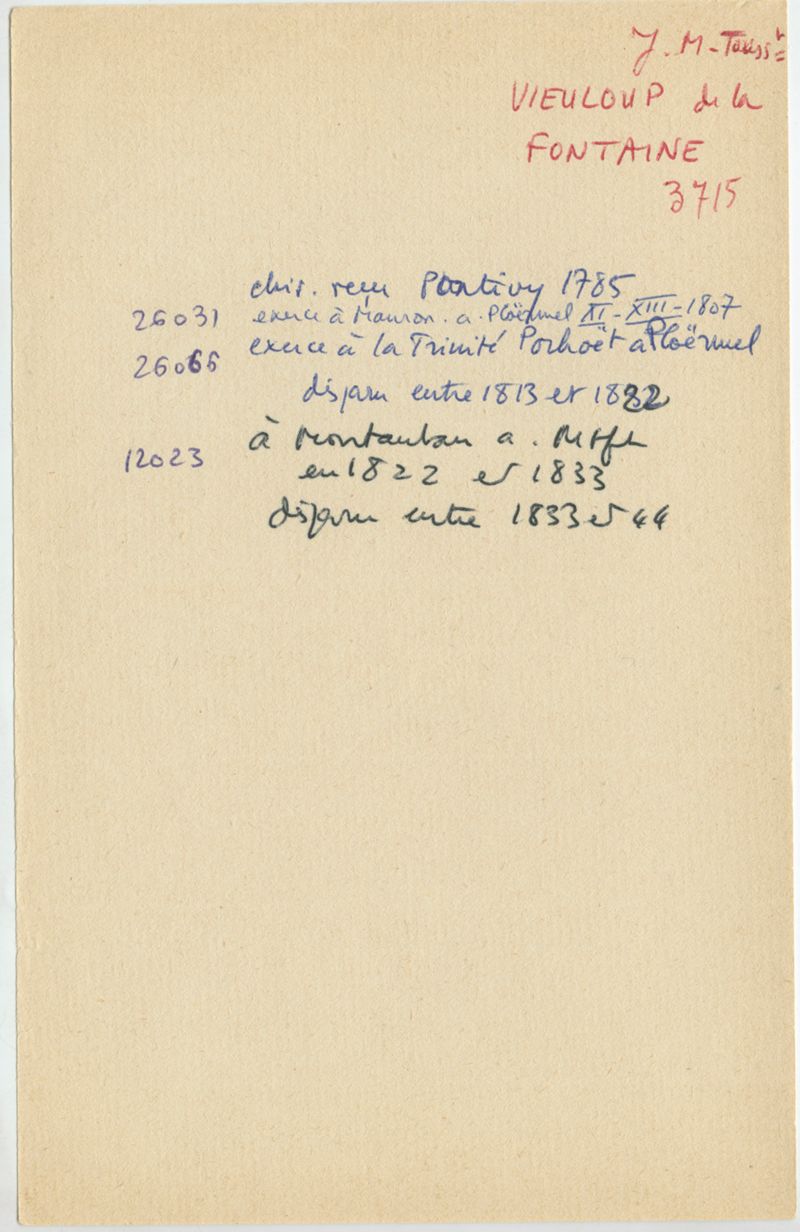 J. M-Touss^t
VIEULOUP de la
FONTAINE
3715
chir. reçu Pontivy 1785
26031 exerce à Mauron. a. Ploërmel XI-XIII-1807
26066 exerce à la Trinité Porhoët a Ploërmel
disparu entre 1813 et 1822
12023 à Montauban a. Mtft
en 1822 et 1833
disparu entre 1833 et 44